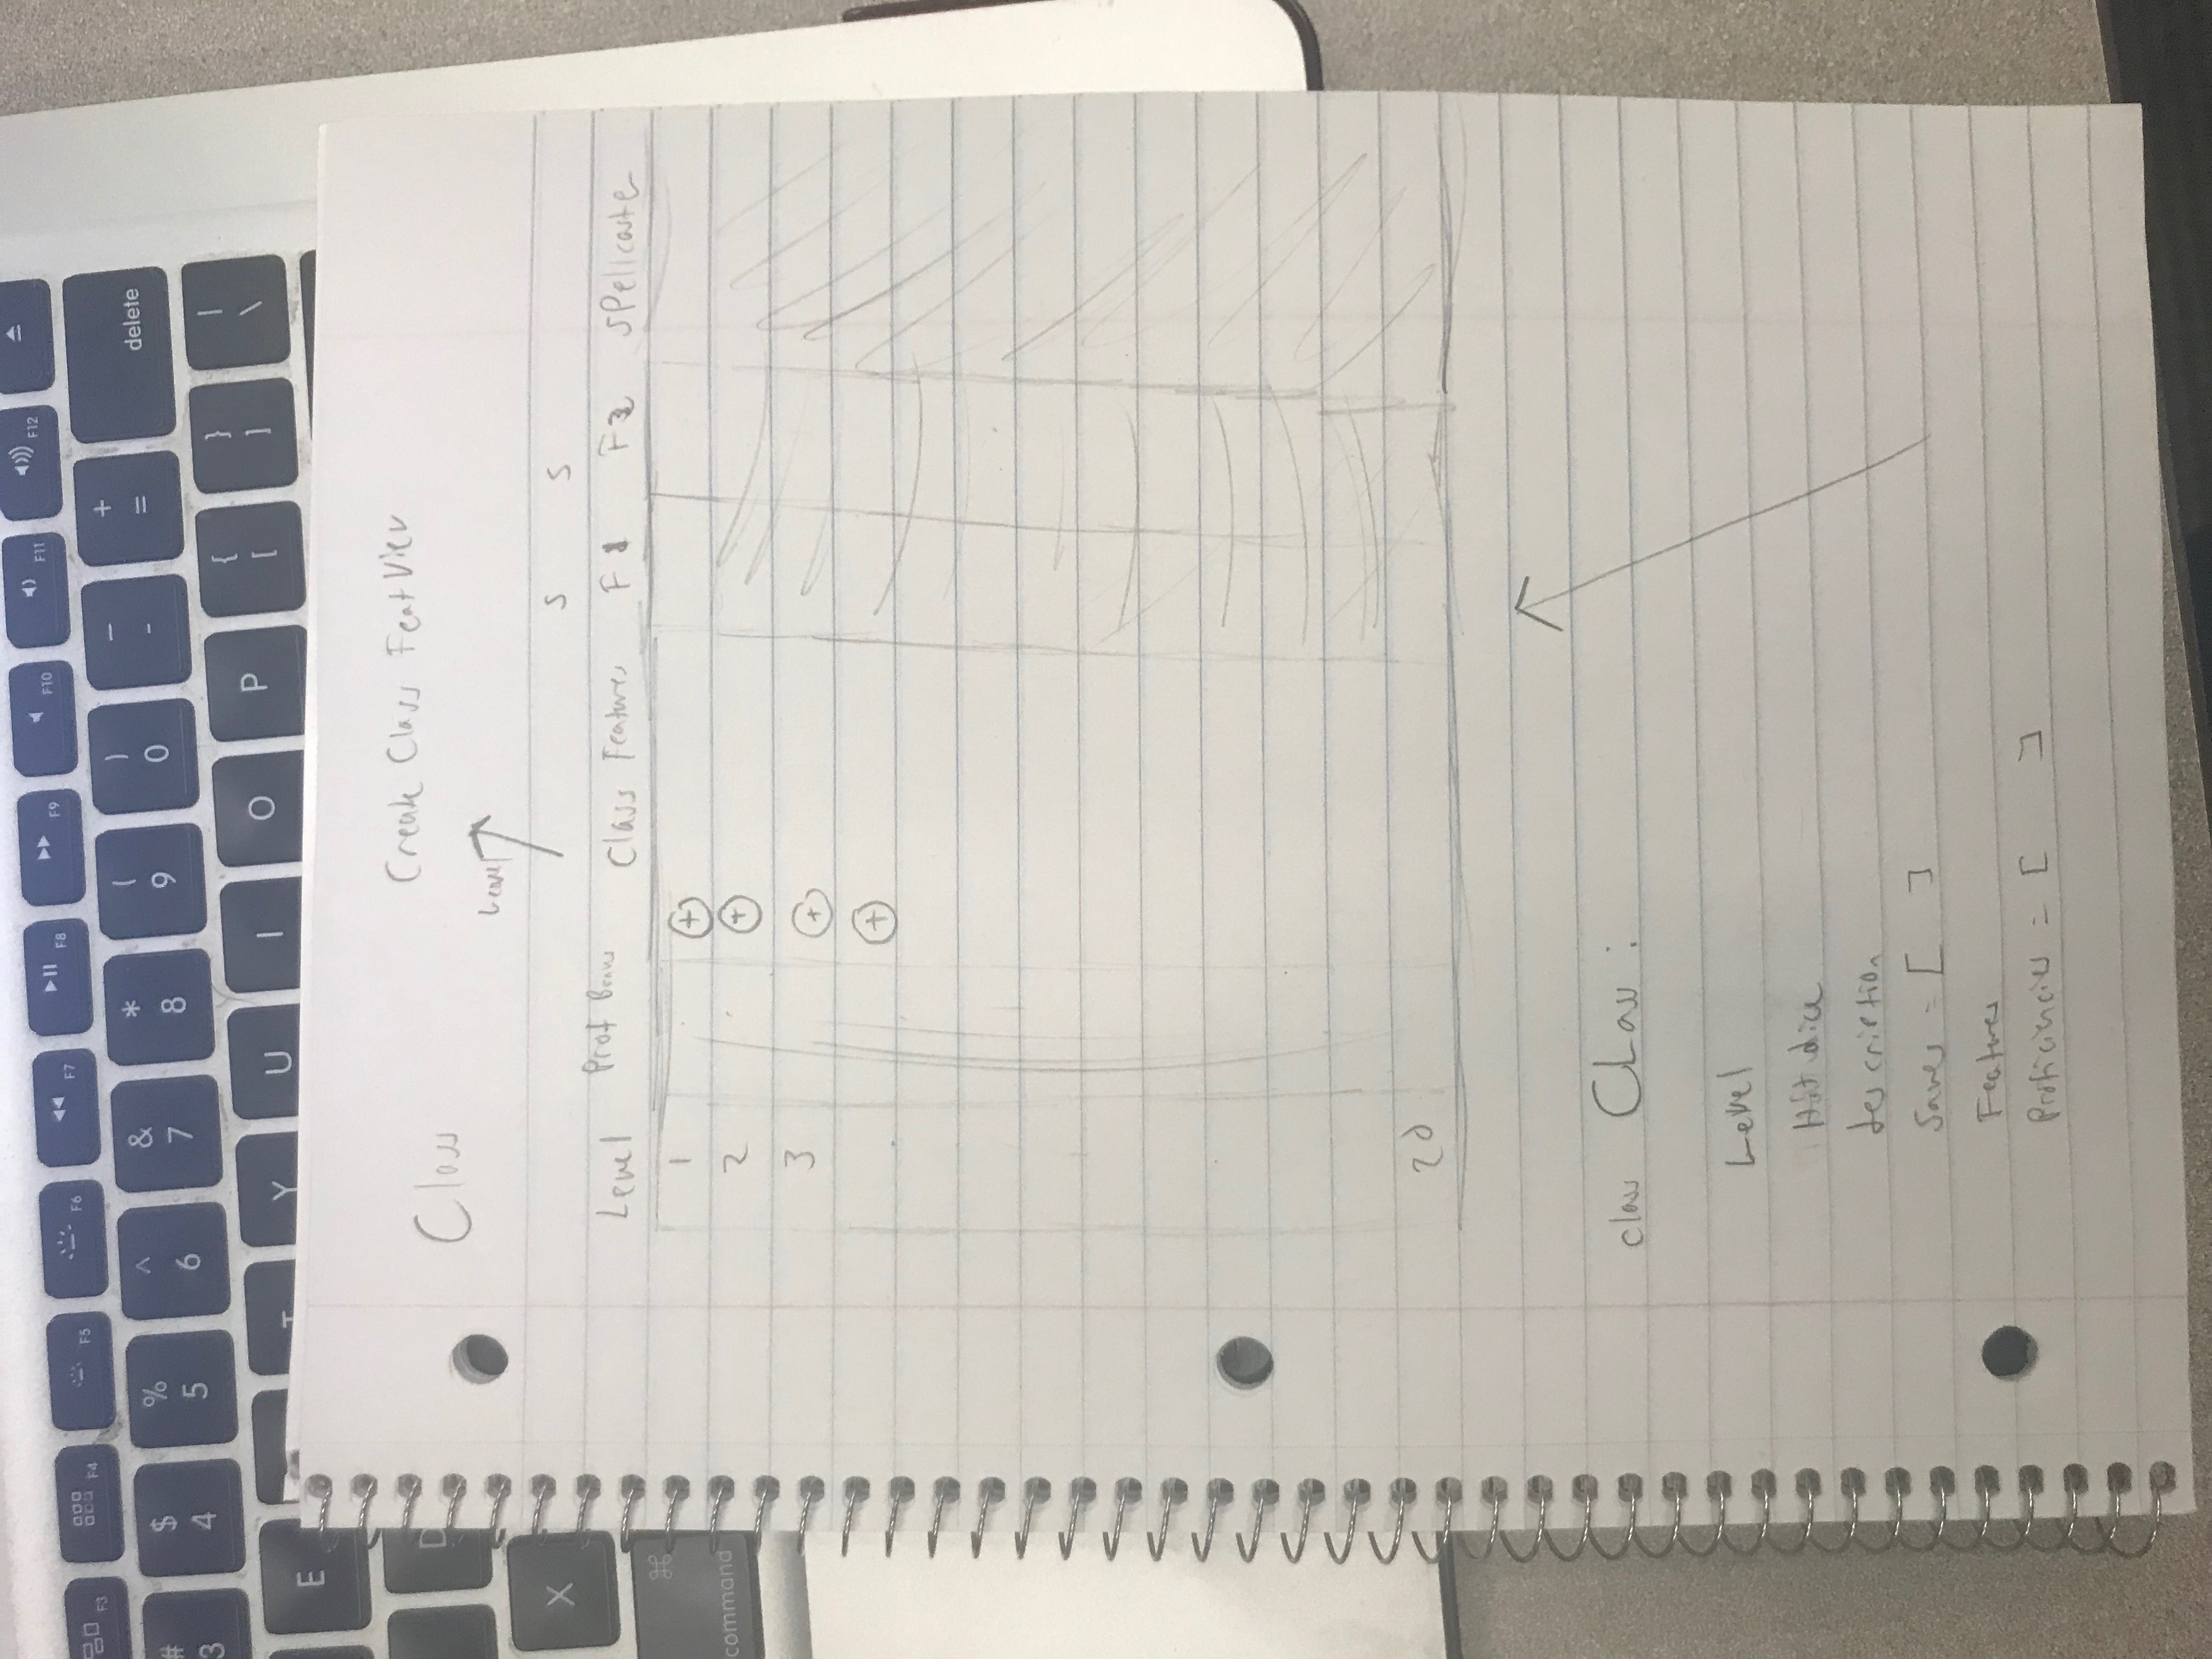 F3 F4 F5 F6 F7 F8 F9 F10 F11 F12
# $ % ^ & * ( ) _ + delete
3 4 5 6 7 8 9 0 - =
E T Y U I O P { } |
[ ] \
D
X
⌘
command
Create Class Feat View
Class
Level
S S
Level Prof Bonus Class Features F1 F2 Spellcaster
1 +
2 +
3 +
+
20
class Class :
Level
Hit dice
description
Saves = [ ]
Features
Proficiencies = [ ]